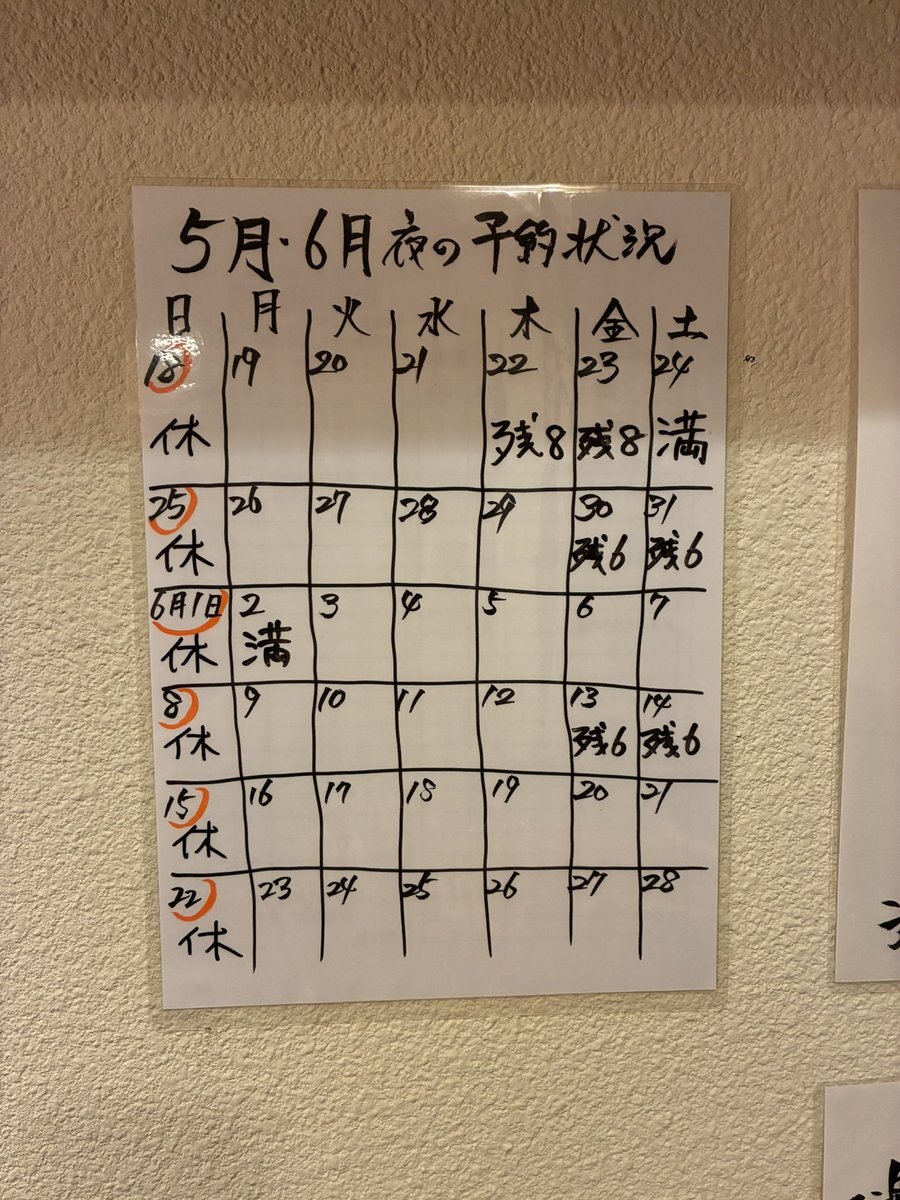 5月・6月夜の予約状況
日 月 火 水 木 金 土
18 19 20 21 22 23 24
休 残8 残8 満
25 26 27 28 29 30 31
休 残6 残6
6月1日 2 3 4 5 6 7
休 満
8 9 10 11 12 13 14
休 残6 残6
15 16 17 18 19 20 21
休
22 23 24 25 26 27 28
休